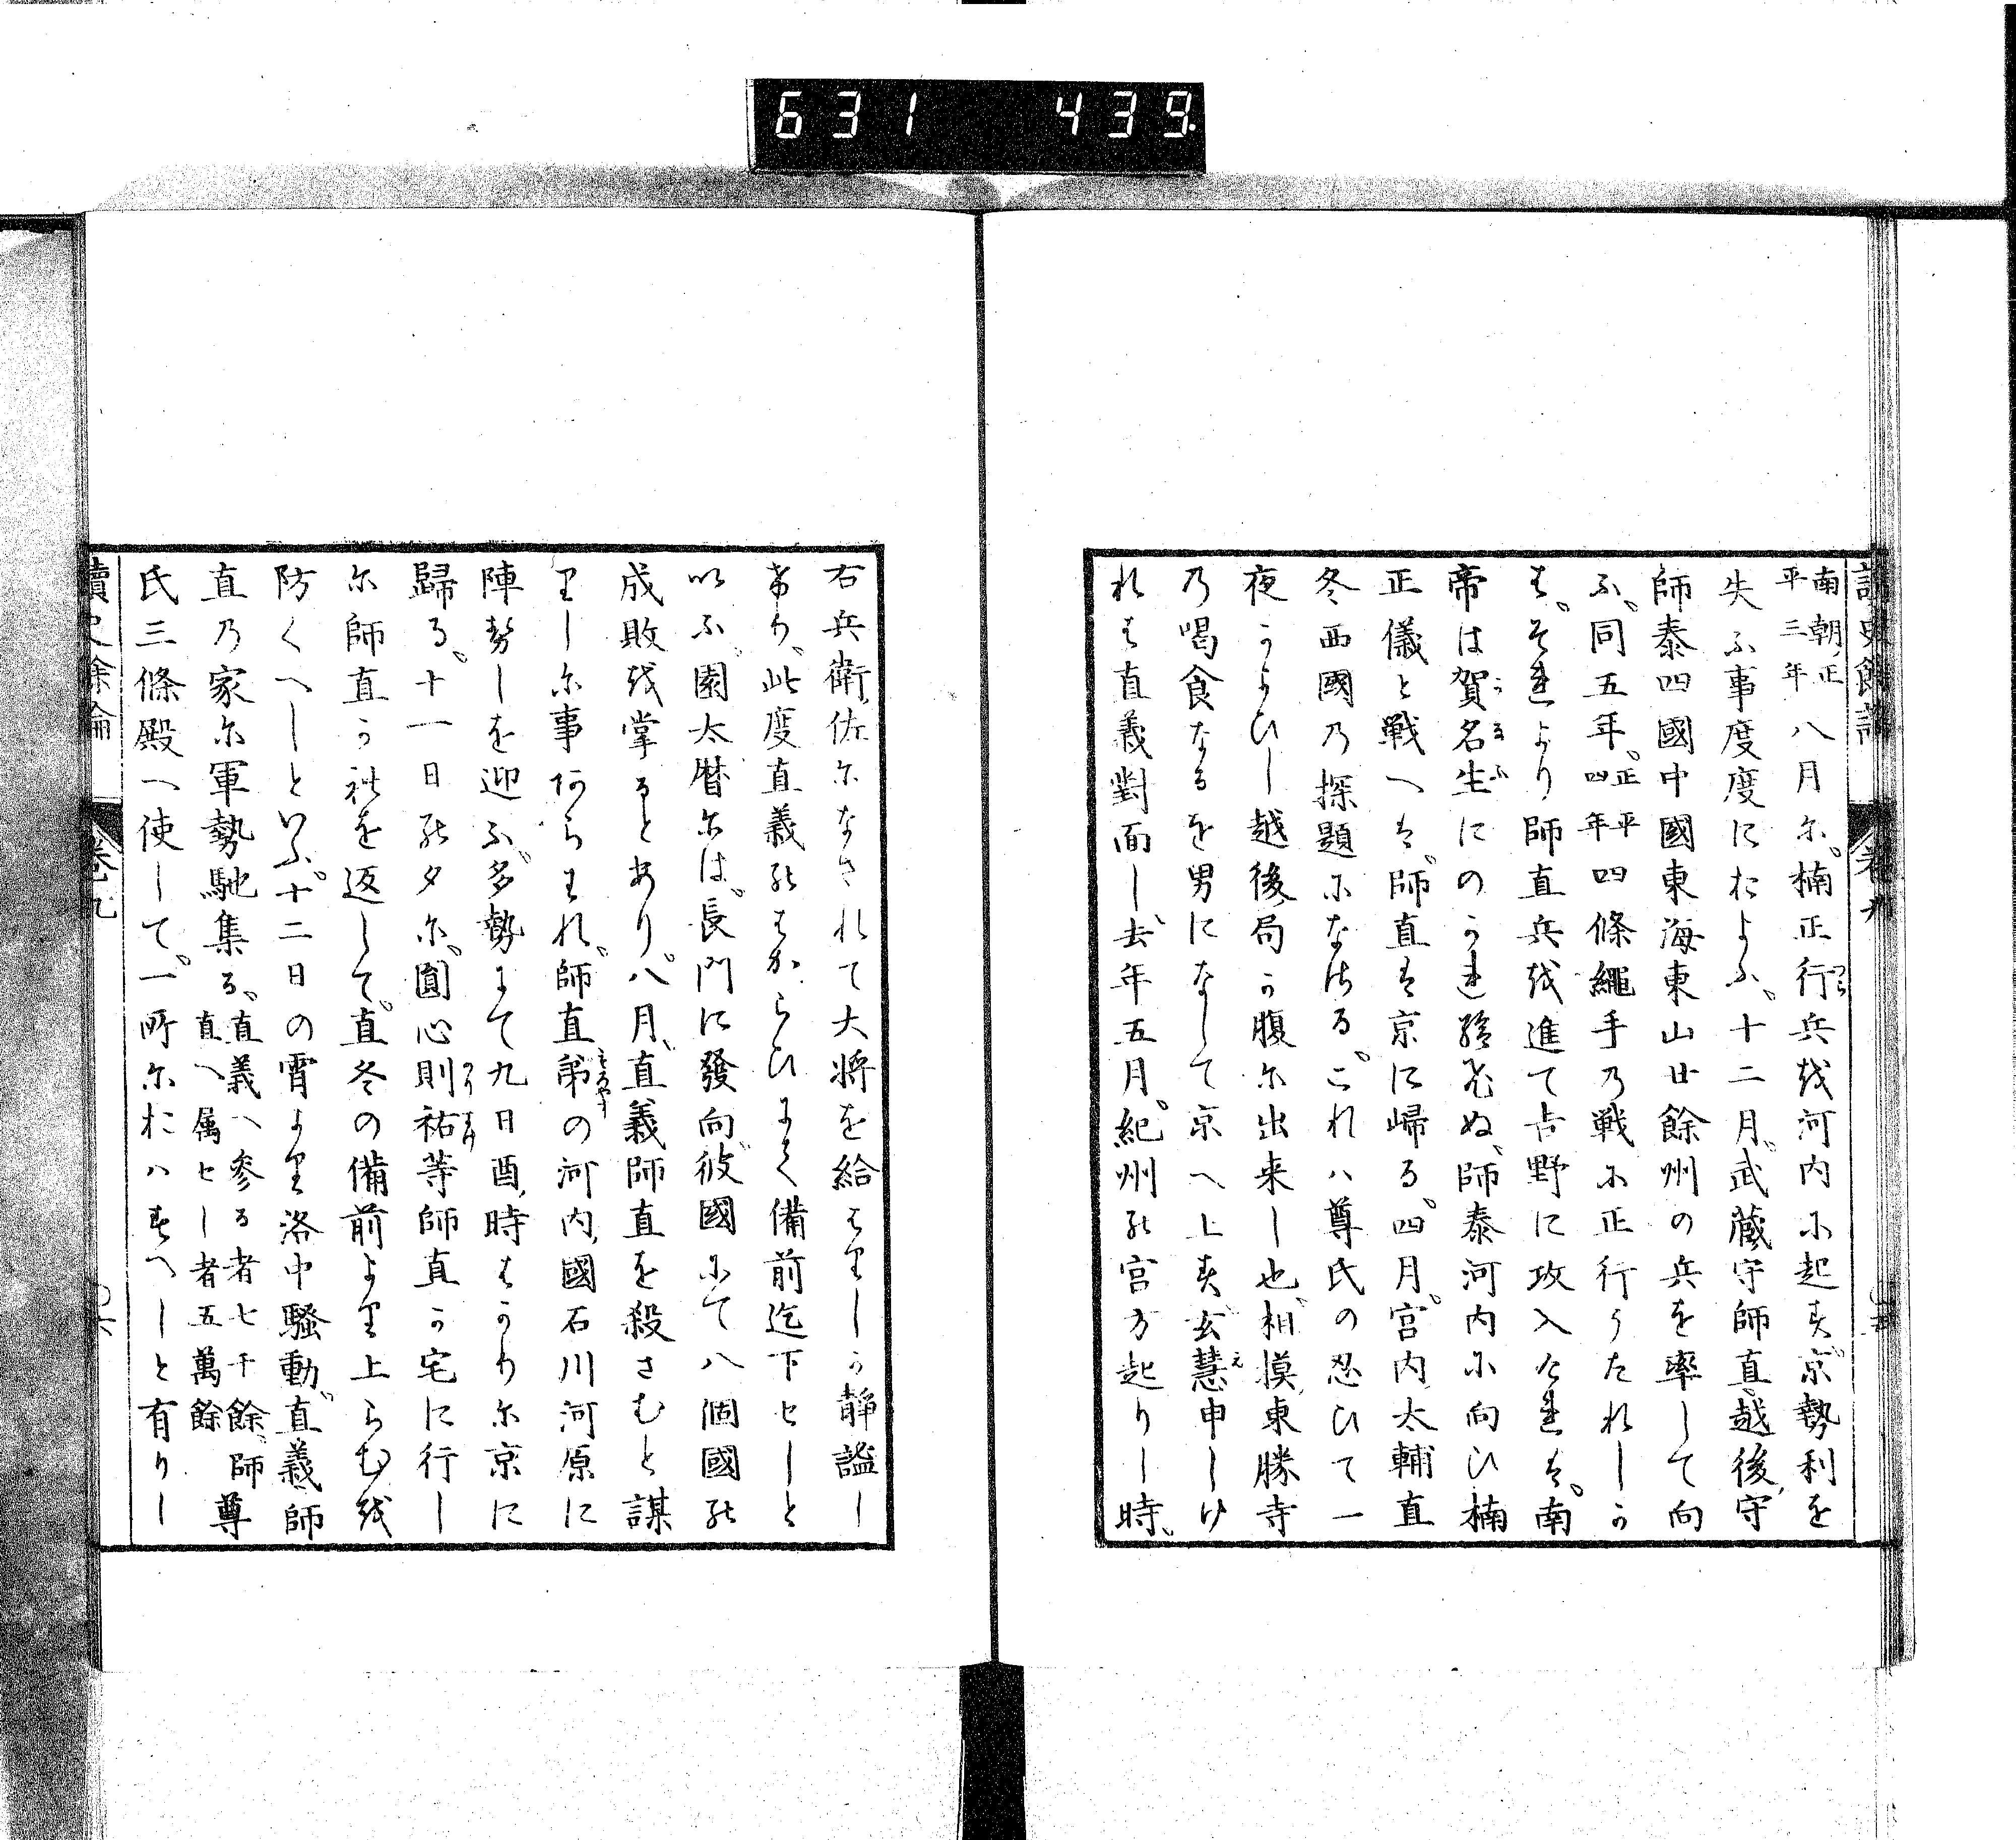 631 439.
讀史餘論 卷九
南朝、正平三年 八月尓、楠正行兵越河内尓起春、京勢利を
失ふ事度度におよふ、十二月、武蔵守師直、越後守
師泰四國中國東海東山廿餘州の兵を率して向
ふ、同五年。正平四年 四條繩手乃戦尓正行うたれしか
は、それより師直兵越進て吉野に攻入け連は、南
帝は賀名生にのか連給飛ぬ、師泰河内尓向ひ楠
正儀と戦へは、師直は京に歸る。四月。宮内太輔直
冬西國乃探題尓なさる。これハ尊氏の忍ひて一
夜かよひし越後局か腹尓出来し也、相摸東勝寺
乃喝食なるを男になして京へ上春、玄慧申しけ
れは直義對面し、去年五月。紀州能宮方起りし時、
右兵衛佐尓なされて大将を給はりしか靜謐し
希り、此度直義能はからひにて備前迄下セしと
いふ、園太暦尓は、長門に發向、彼國尓て八個國能
成敗越掌るとあり、八月、直義師直を殺さむと謀
りし尓事阿らはれ、師直弟の河内國石川河原に
陣勢しを迎ふ、多勢にて九日酉時はかり尓京に
歸る、十一日能夕尓、圓心則祐等師直か宅に行し
尓師直か社を返して、直冬の備前より上らむ越
防くへしといふ、十二日の宵より洛中騒動、直義師
直乃家尓軍勢馳集る、直義ヘ参る者七千餘、師直ヘ属セし者五萬餘 尊
氏三條殿へ使して、一所尓おハ春へしと有りし
讀史餘論 卷之九